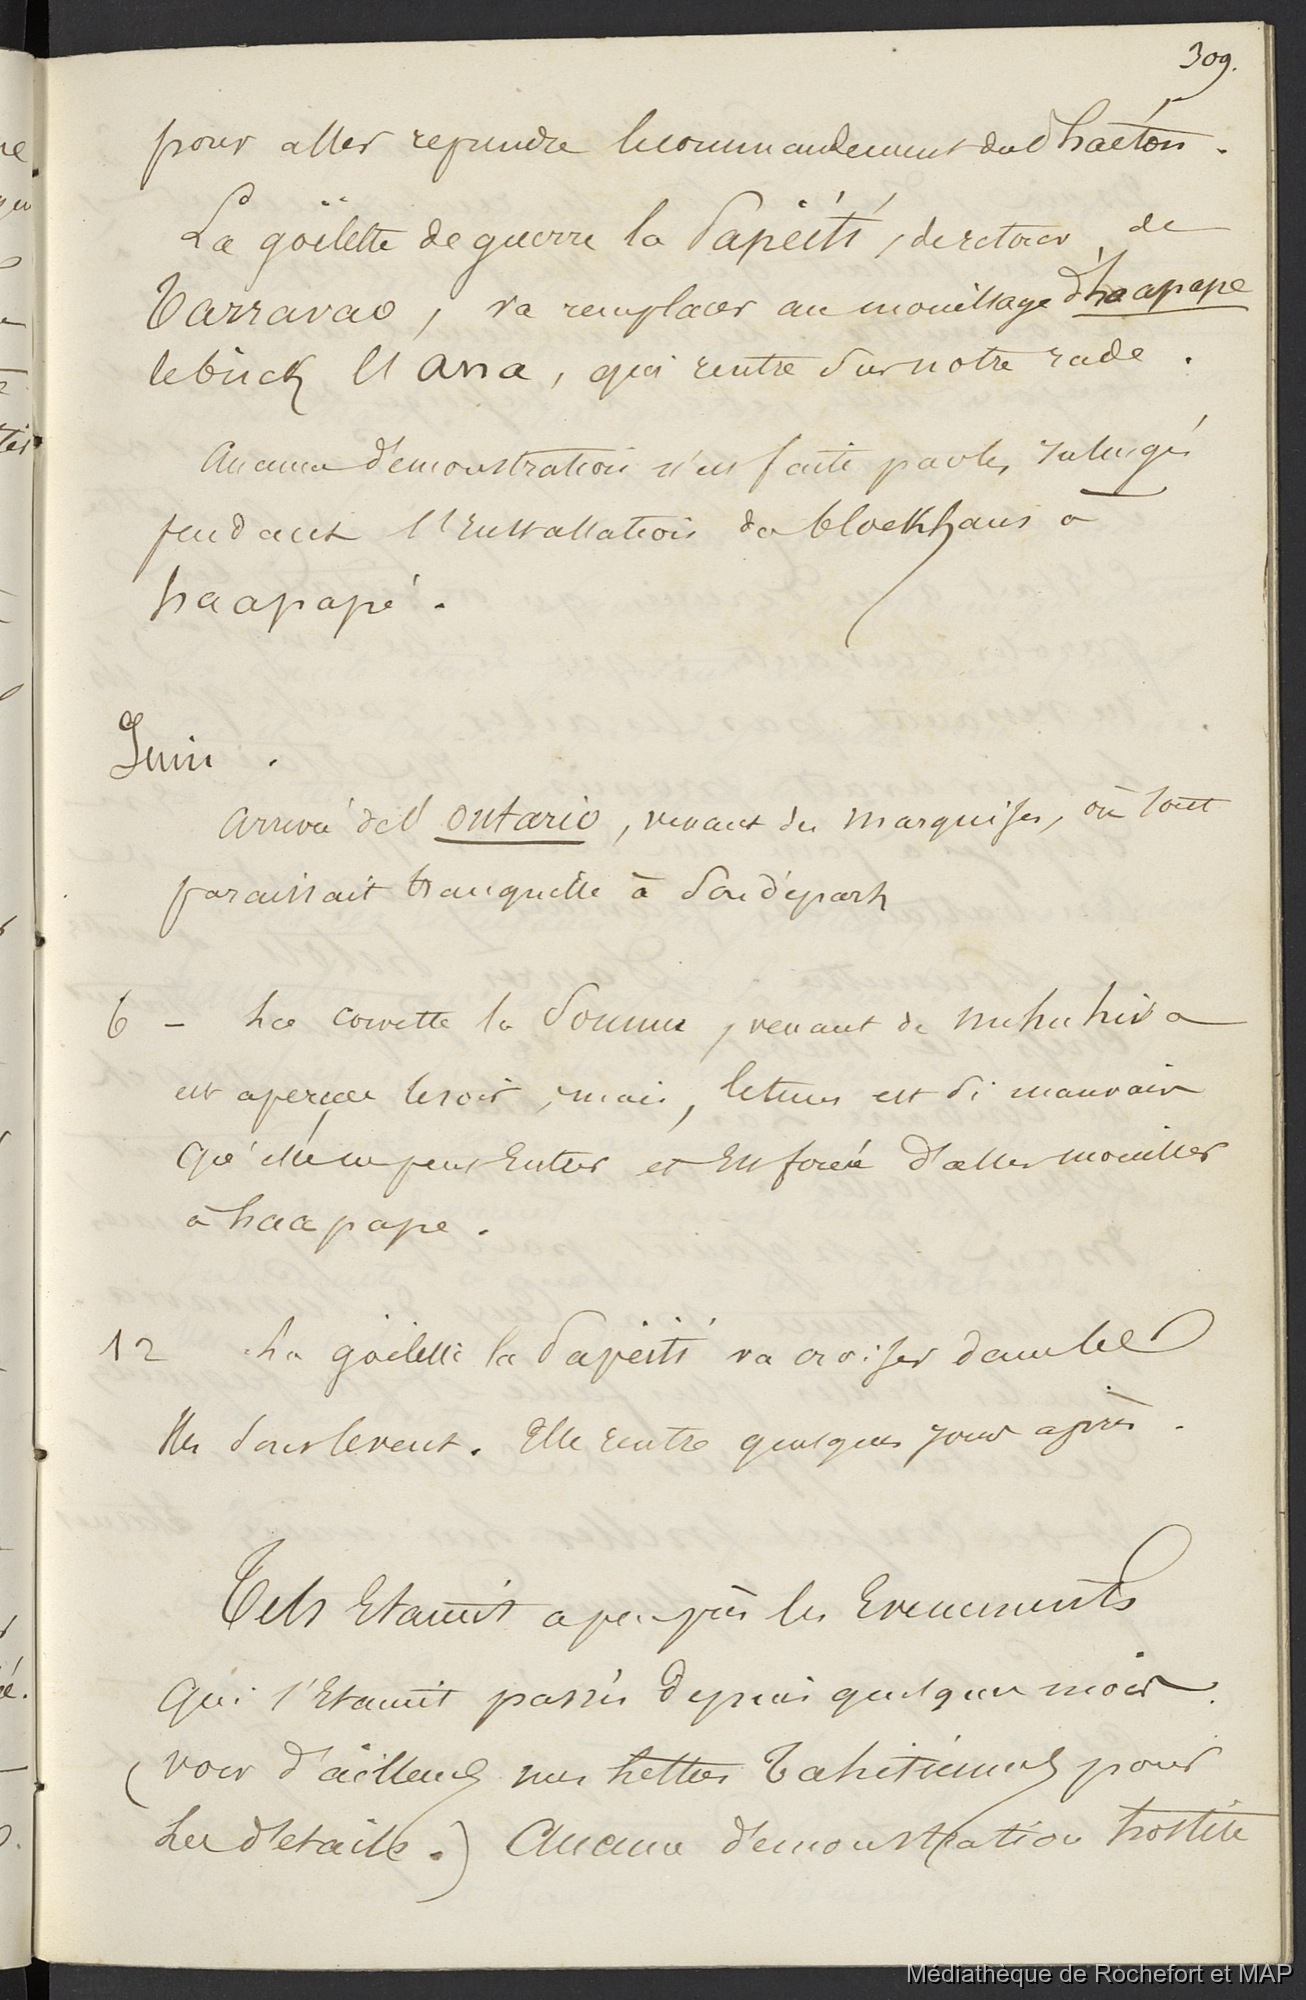 309.
pour aller reprendre le commandement du Phaéton.
La goëlette de guerre la Papéïti, de retour de
Tarravao, va remplacer au mouillage d'haapape
le brick l'Ana, qui rentre sur notre rade.
Aucune démonstration n'est faite par les
pendant l'Installation du blockhaus à
haapapé.
Juin.
arrivée de l'ontario, venant des marquises, où tout
paraissait tranquille à son départ
6 - La corvette la Somme, venant de nuhuhiva
est aperçue le soir, mais, le tems est si mauvais
qu'elle ne peut Entrer et Est forcée d'aller mouiller
à haapape.
12 La goëlette la Papéïti va croiser dans les
Iles sous le vent. Elle rentre quelques jours après.
Tels Etaient a peu près les Evenements
qui s'Etaient passés depuis quelques mois.
(voir d'ailleurs mes Lettres Tahitiennes pour
les détails.) Aucune démonstration hostile
Médiathèque de Rochefort et MAP